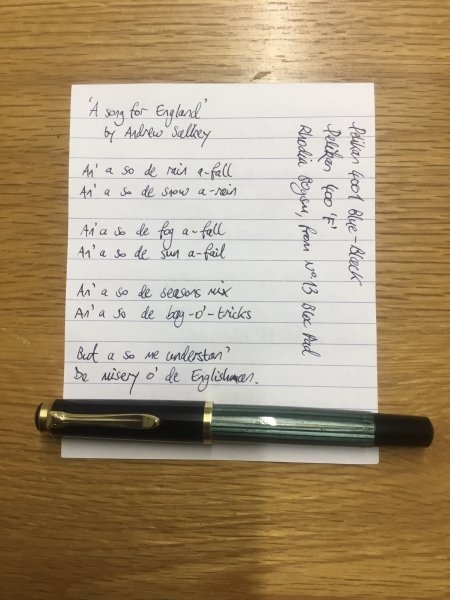 'A song for England'
by Andrew Salkey
An' a so de rain a-fall
An' a so de snow a-rain
An' a so de fog a-fall
An' a so de sun a-fail
An' a so de seasons mix
An' a so de bag-o'-tricks
But a so me understan'
De misery o' de Englishman.
Pelikan 4001 Blue-Black
Pelikan 400 'F'
Rhodia 80gsm, from Nº 13 Bloc Pad